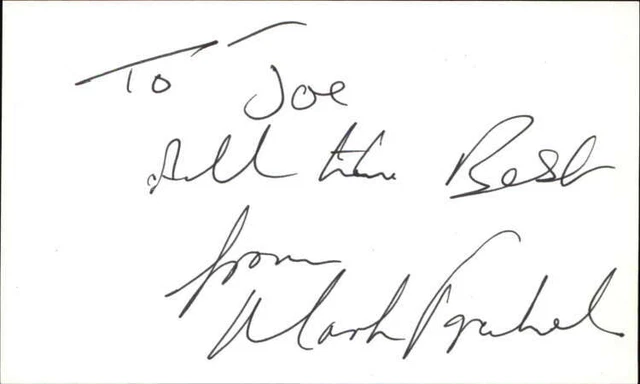 To Joe
All the Best
from
Mark